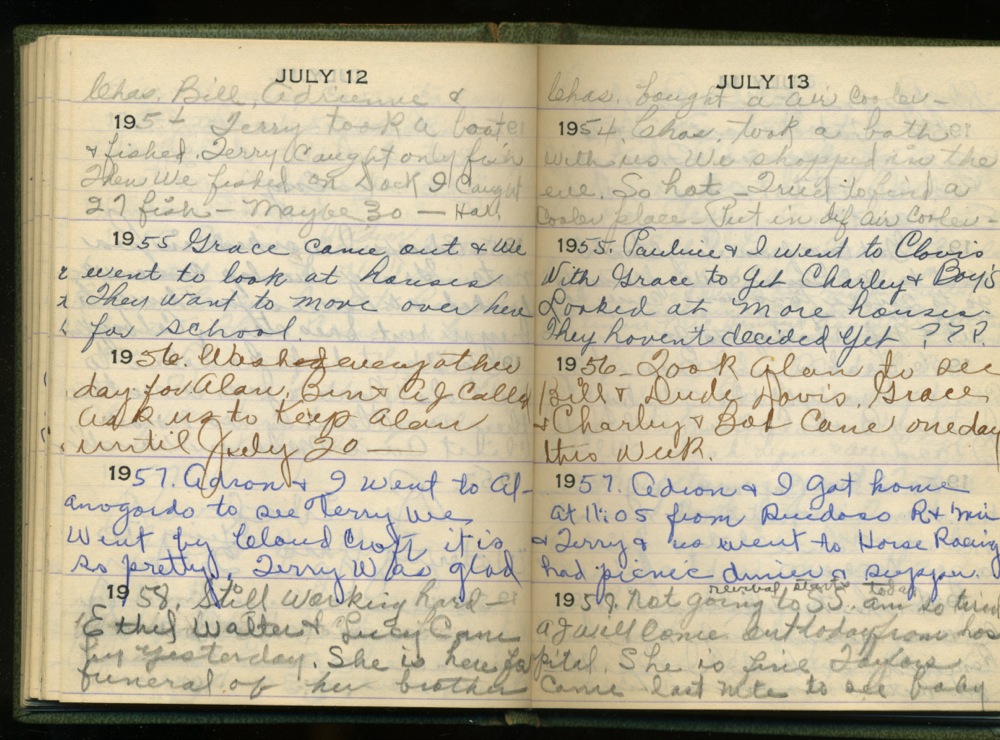 JULY 12
Chas, Bill, Adrienne &
1954 Terry took a boat
& fished. Terry Caught only fish
Then We fished on Dock I Caught
27 fish - Maybe 30 - Ha!
1955 Grace came out & We
went to look at houses
They want to move over here
for school.
1956. Washed every other
day for Alan. Bin & AJ Called
ask us to keep Alan
until July 20 —
1957. Adron & I went to Al-
amogordo to see Terry We
Went by Cloud Croft it is
so pretty. Terry Was glad
1958. Still working hard -
Ethel Walter & Lucy Came
by yesterday. She is here for
funeral of her brother
JULY 13
Chas. bought a air cooler -
1954. Chas. took a bath
with us We shopped in the
eve. So hot - Tried to find a
cooler place - Put in dif air cooler -
1955. Pauline & I went to Clovis
With Grace to get Charley & Boy's
Looked at more houses.
They havent decided yet ? ? ?.
1956 - Took Alan to see
Bill & Dude Davis. Grace
& Charley & Bob Came one day
this week.
1957. Adron & I got home
at 11:05 from Ruidoso R &
& Terry & us went to Horse Racing
had picnic dinner & supper.
revival starts today
1958. Not going to SS. am so tired
AJ will Come out today from hos
pital. She is fine Taylors
Came last nite to see baby